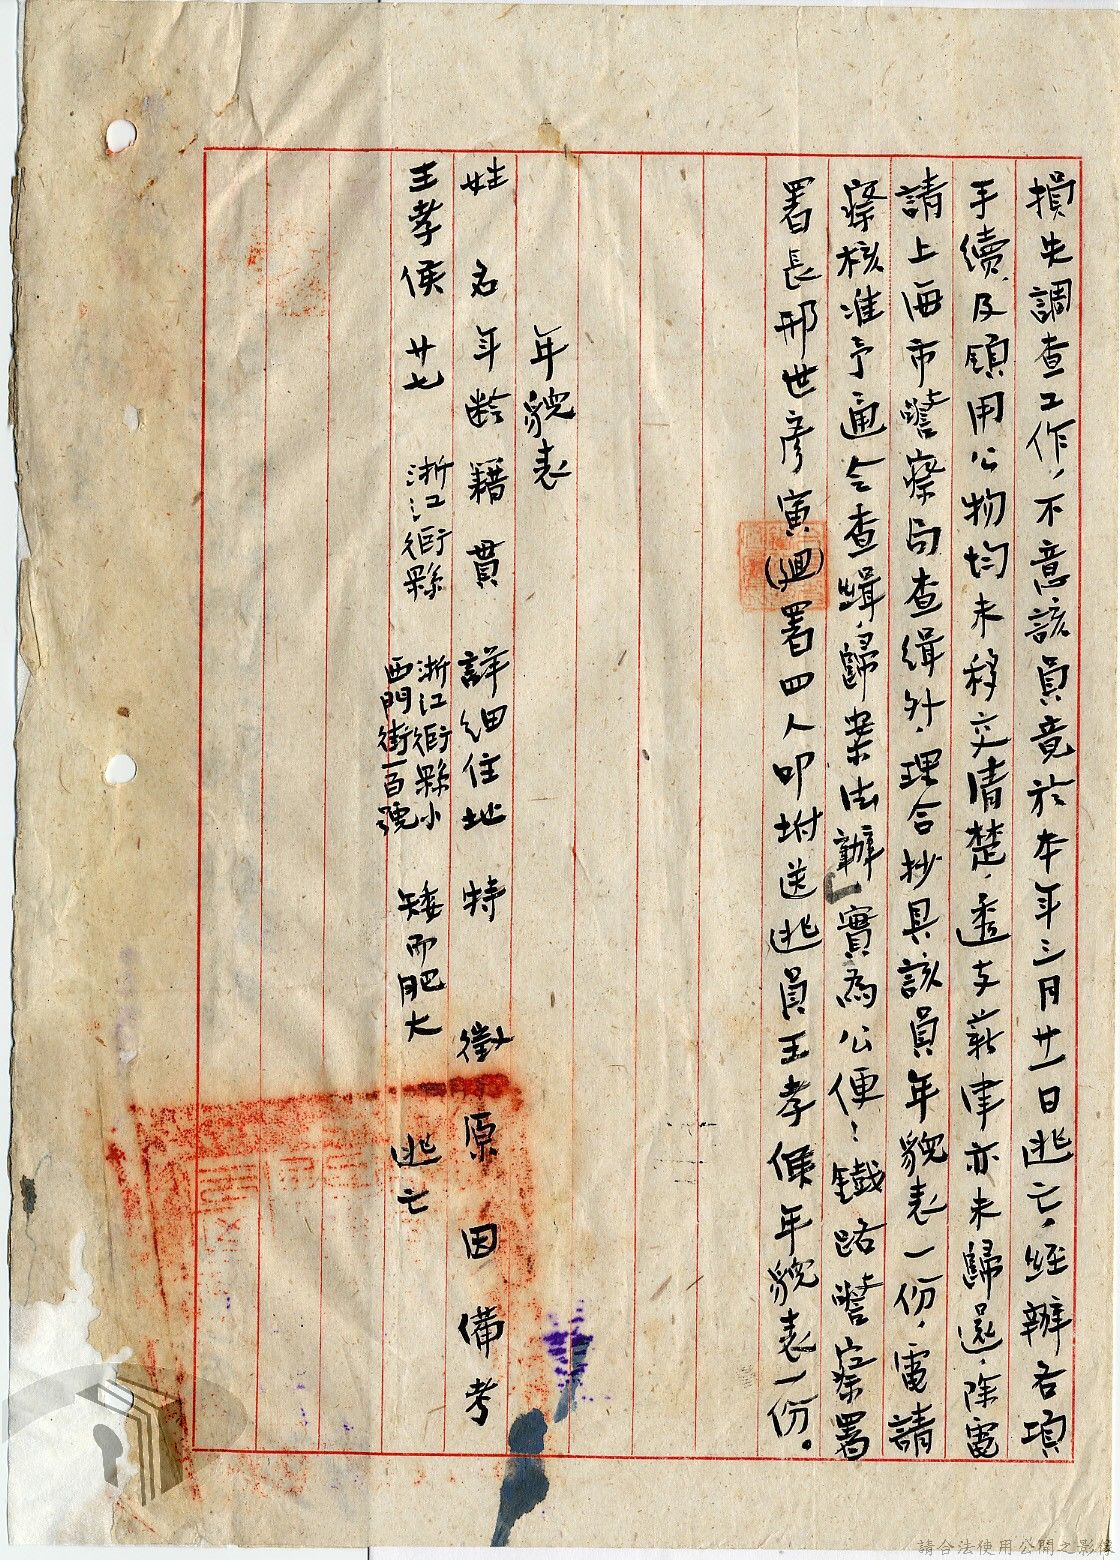 損失調查工作，不意該員竟於本年三月廿一日逃亡，經辦各項
手續及領用公物均未移交清楚，透支薪津亦未歸還，除電
請上海市警察局查緝外，理合抄具該員年貌表一份，電請
察核准予通令查緝，歸案法辦，實為公便！鐵路警察署
署長邢世彥寅(迴)署四人叩附送逃員王孝侯年貌表一份。
年貌表
姓名 年齡 籍貫 詳細住址 特徵 原因 備考
王孝侯 廿七 浙江衢縣 浙江衢縣小
西門街一百號 矮而肥大 逃亡
請合法使用公開之影像